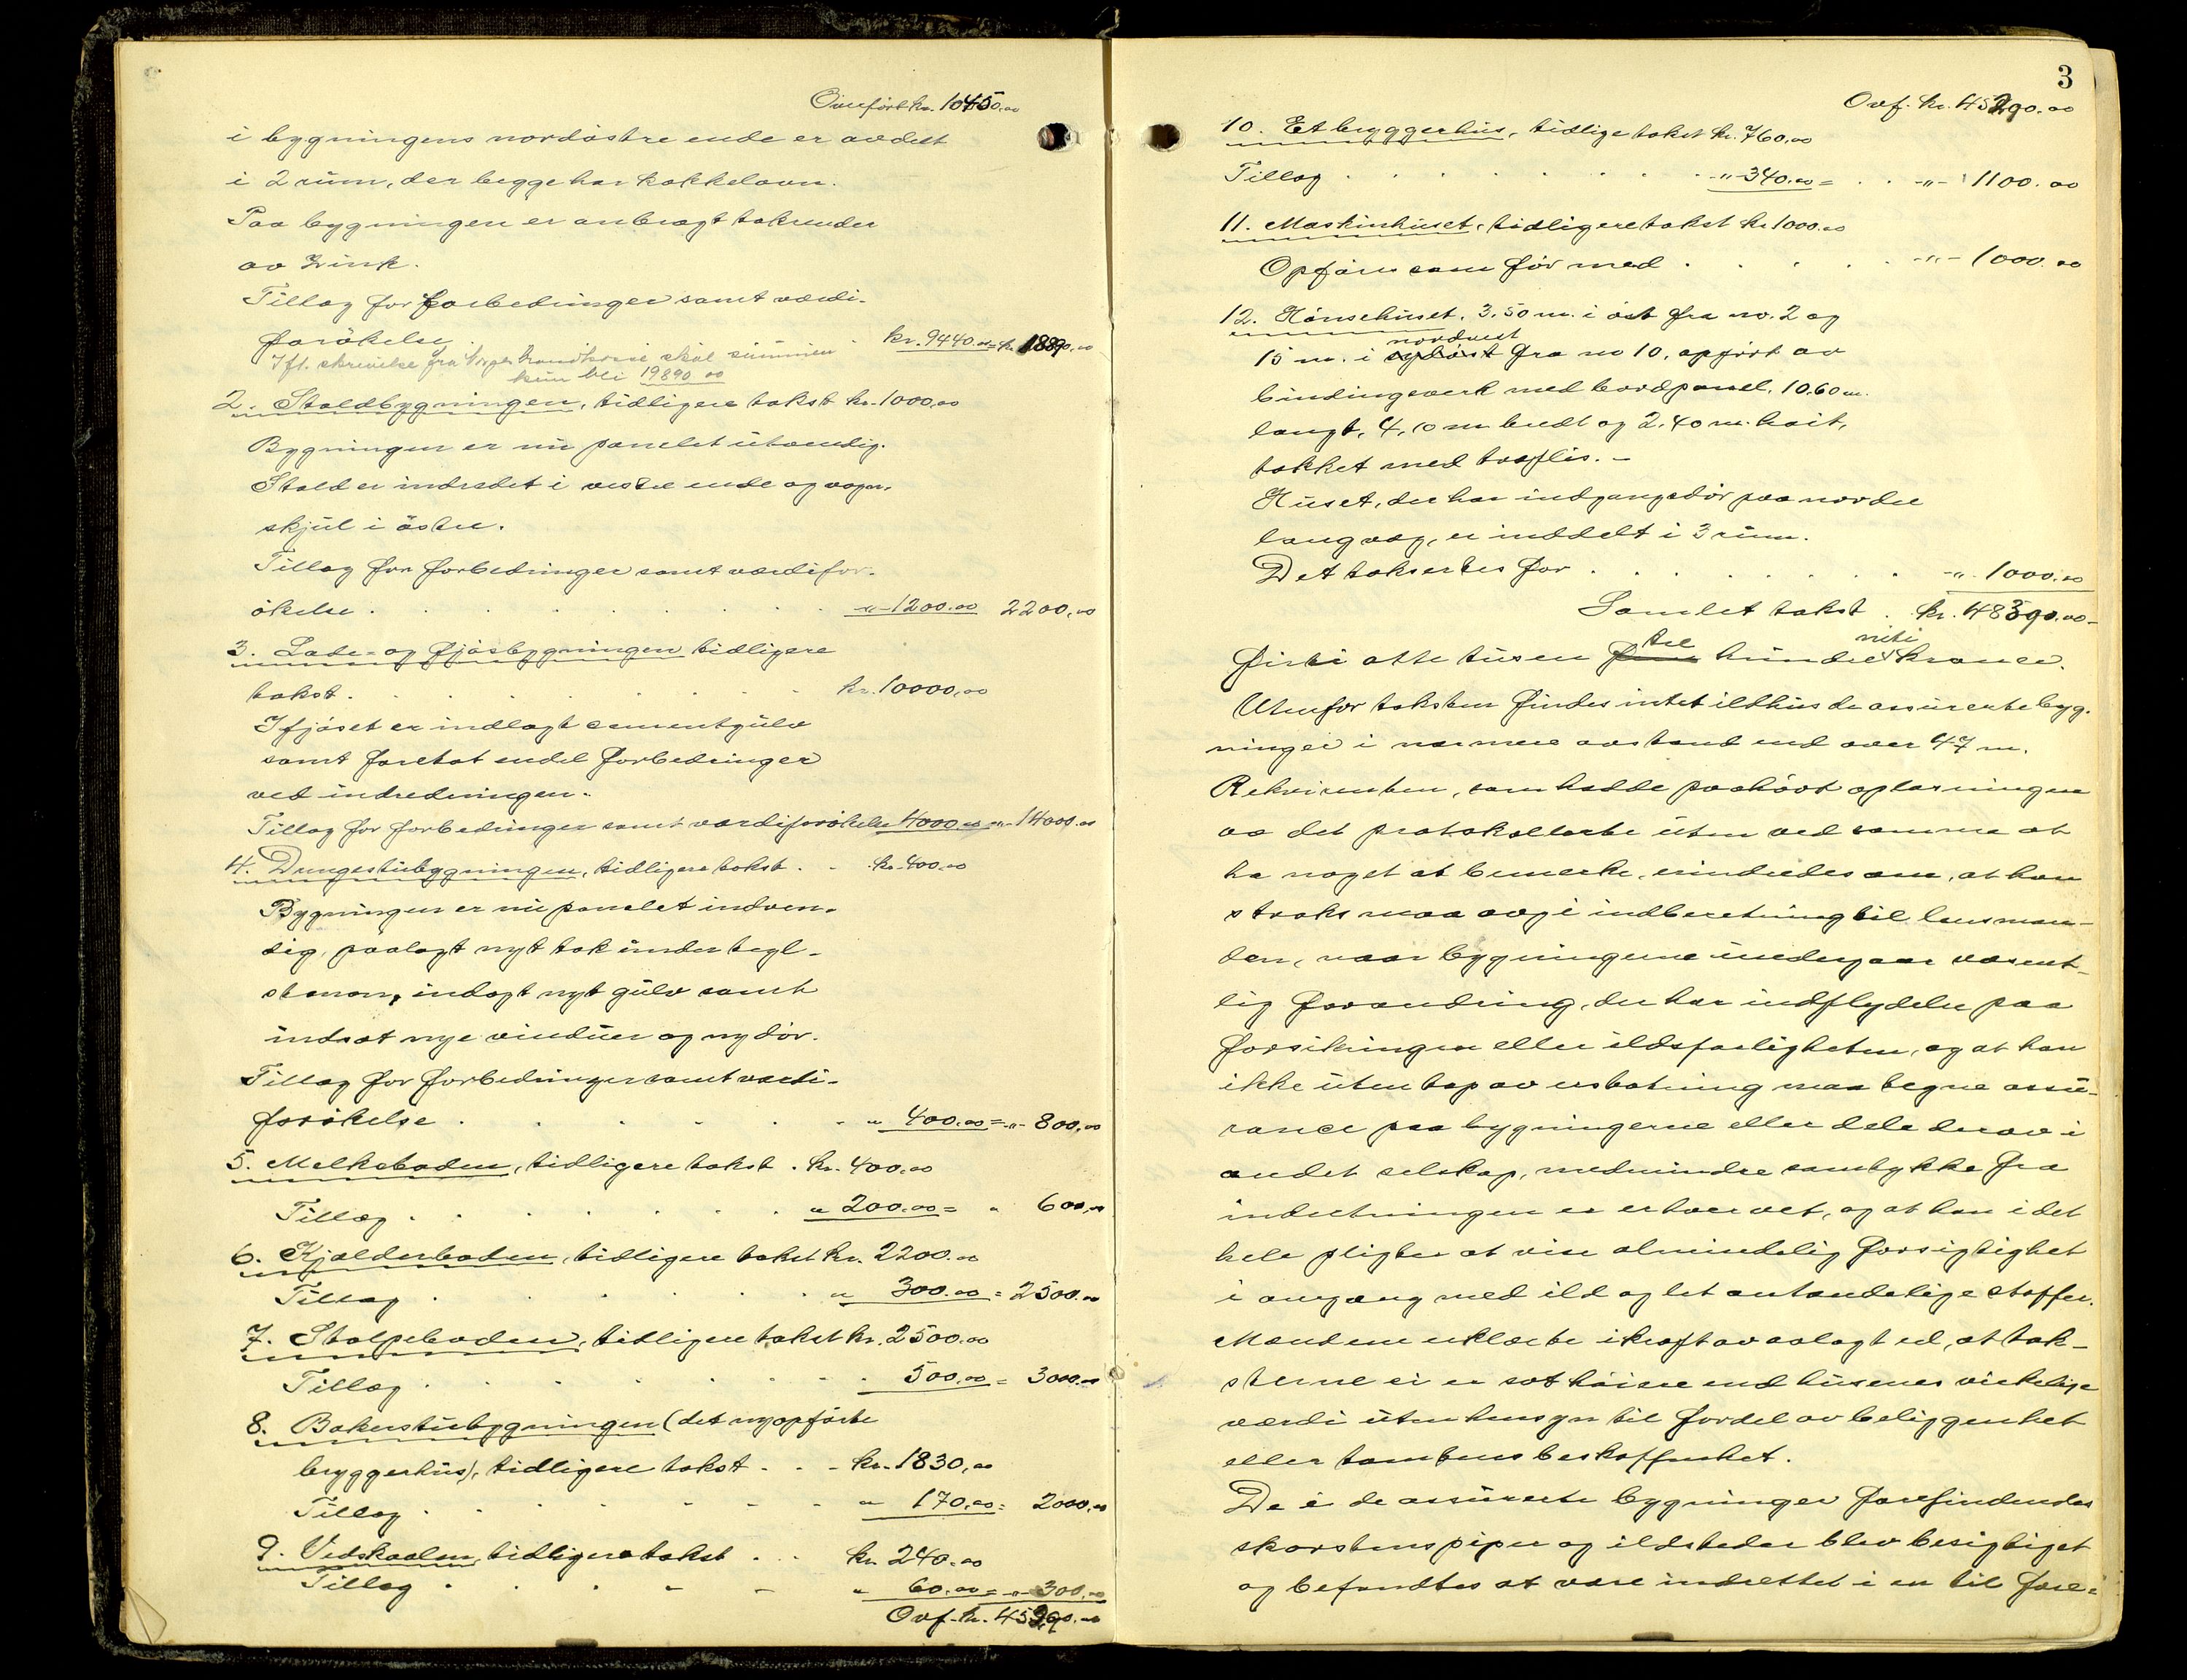 Overført kr. 10450.00
i bygningens nordöstre ende er avdelt
i 2 rum, der begge har kakkelovn.
Paa bygningen er anbragt takrender
av Zink.
Tillæg for forbedringer samt værdi-
forökelse . kr. 9440.00 = kr. 19890.00
Ifl. skrivelse fra Norges brandkasse skal summen
kun bli 19890 00
2. Staldbygningen, tidligere takst kr. 1000.00
Bygningen er nu panelet utvendig.
Stald er indredet i vestre ende og vogn-
skjul i östre.
Tillæg for forbedringer samt værdifor-
ökelse . . . . . . . . -"- 1200.00 2200.00
3. Lade- og fjösbygningen tidligere
takst . . . . . . . . kr. 10000.00
I fjöset er indlagt cementgulv
samt foretat endel forbedringer
ved indredningen.
Tillæg for forbedringer samt værdiforökelse 4000.00 = -"- 14000.00
4. Drengestubygningen, tidligere takst . . kr. 400.00
Bygningen er nu panelet indven-
dig, paalagt nyt tak under tegl-
stenen, indlagt nyt gulv samt
indsat nye vinduer og ny dör.
Tillæg for forbedringer samt værdi-
forökelse . . . . . . " 400.00 = -"- 800.00
5. Melkeboden, tidligere takst . kr. 400.00
Tillæg . . . . . . . " 200.00 = " 600.00
6. Kjælderboden, tidligere takst kr. 2200.00
Tillæg . . . . . . " 300.00 = 2500.00
7. Stolpeboden, tidligere takst kr. 2500.00
Tillæg . . . . . . . 500.00 = 3000.00
8. Bakerstubygningen (det nyopförte
bryggerhus), tidligere takst . . . kr. 1830.00
Tillæg . . . . . . . " 170.00 = 2000.00
9. Vedskaalen, tidligere takst . . . kr. 240.00
Tillæg . . . . . . " 60.00 = -"- 300.00
Ovf. kr. 45290.00
3
Ovf. kr. 45290.00
10. Et bryggerhus, tidlige takst kr. 760.00
Tillæg . . . . . . . . -"- 340.00 = . . -"- 1100.00
11. Maskinhuset, tidligere takst kr 1000.00
Opföres som för med . . . . . -"- 1000.00
12. Hönsehuset. 3,50 m. i öst fra no. 2 og
nordvest
15 m. i sydöst fra no 10, opfört av
bindingsverk med bordpanel, 10,60 m.
langt, 4,10 m bredt og 2,40 m. höit,
tækket med træflis. -
Huset, der har indgangsdör paa nordre
langvæg, er inddelt i 3 rum.
Det taksertes for . . . . . . . -"- 1000.00
Samlet takst . kr. 48390.00-
tre niti
Firti otte tusen hundrede kroner.
Utenfor taksten findes intet ildhus de assurerte byg-
ninger i nærmere avstand end over 47 m.
Rekvirenten, som hadde paahört oplæsningen
av det protokollerte uten ved samme at
ha noget at bemerke, erindredes om, at han
straks maa avgi indberetning til lensman-
den, naar bygningerne undergaar væsent-
lig forandring, der har indflydelse paa
forsikringen eller ildsfarligheten, og at han
ikke uten tap av erstatning maa tegne assu-
rance paa bygningerne eller dele derav i
andet selskap, medmindre samtykke fra
indretningen er erhvervet, og at han i det
hele pligter at vise almindelig forsigtighet
i omgang med ild og let antændelige stoffer.
Mændene erklærte i kraft av avlagt ed, at tak-
sterne ei er sat höiere end husenes virkelige
værdi uten hensyn til fordel av beliggenhet
eller tomtens beskaffenhet.
De i de assurerte bygninger forefindendes
skorstenspiper og ildsteder blev besigtiget
og befandtes at være indrettet i en til fore-